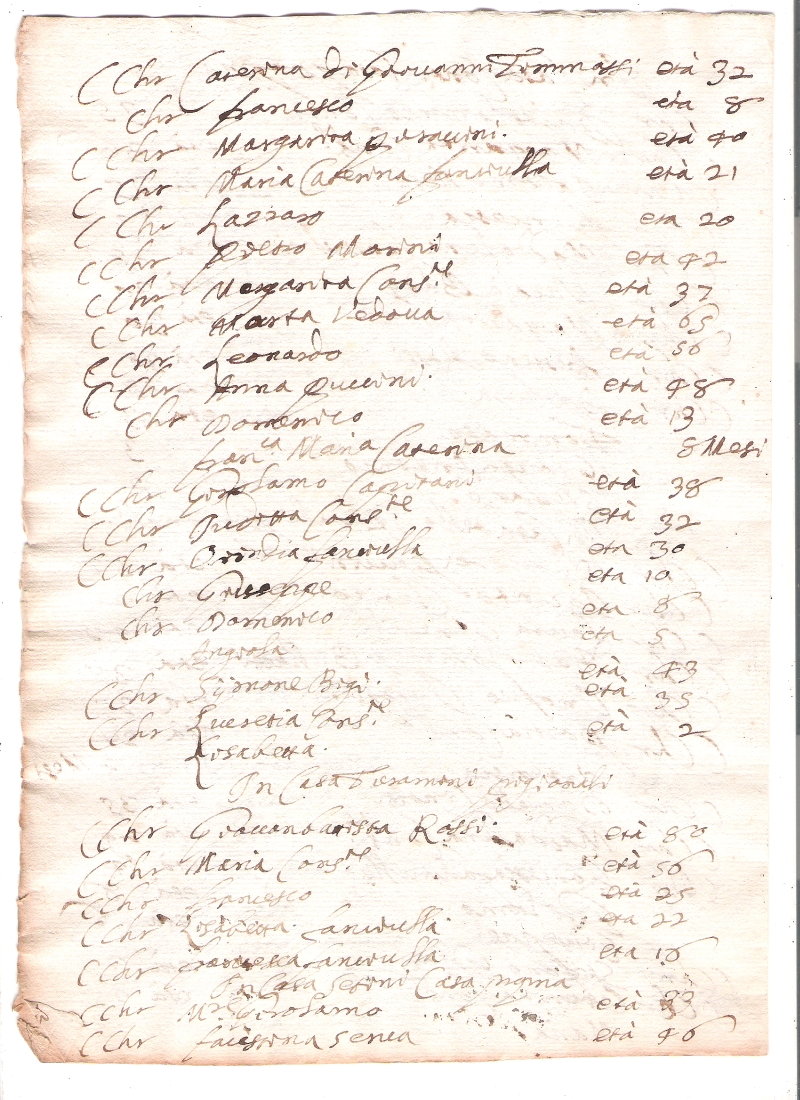 C Chr Caterina di Giovanni Tommassi età 32
Chr francesco eta 8
C Chr Margarita età 40
C Chr Maria Caterina fanciulla età 21
C Chr Lazzaro eta 20
C Chr Pietro Marini eta 42
C Chr Margarita Cons.te età 37
C Chr Marta Vedova età 65
C Chr Leonardo età 56
C Chr Anna Puccini. età 48
Chr Domenico età 13
fran.ca Maria Caterina 8 Mesi
C Chr Girolamo Capitani età 38
C Chr Cons.te età 32
C Chr fanciulla eta 30
Chr Giuseppe eta 10
Chr Domenico eta 8
Angiola eta 5
C Chr Symone Bigi. età 43
C Chr Lucretia Cons.te età 35
Lisabetta. età 2
In Casa pigionali
C Chr Giovanbatista Rossi. età 80
C Chr Maria Cons.te età 56
C Chr francesco eta 25
C Chr Lisabetta. fanciulla eta 22
C Chr francesca fanciulla eta 16
In Casa Casa
C Chr Girolamo età
C Chr faustina serva età 46